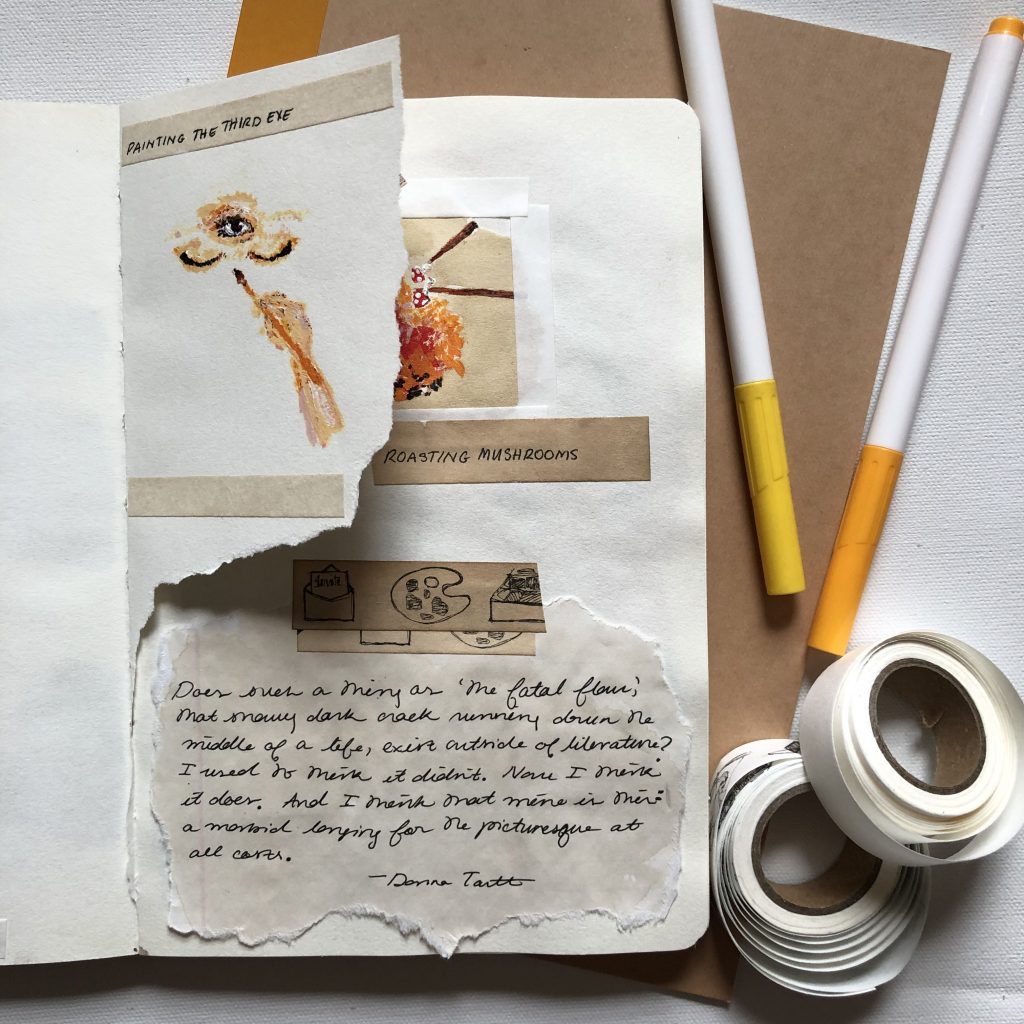 PAINTING THE THIRD EYE
ROASTING MUSHROOMS
Does such a thing as 'the fatal flaw,'
that showy dark crack running down the
middle of a life, exist outside of literature?
I used to think it didn't. Now I think
it does. And I think that mine is this:
a morbid longing for the picturesque at
all costs.
—Donna Tartt